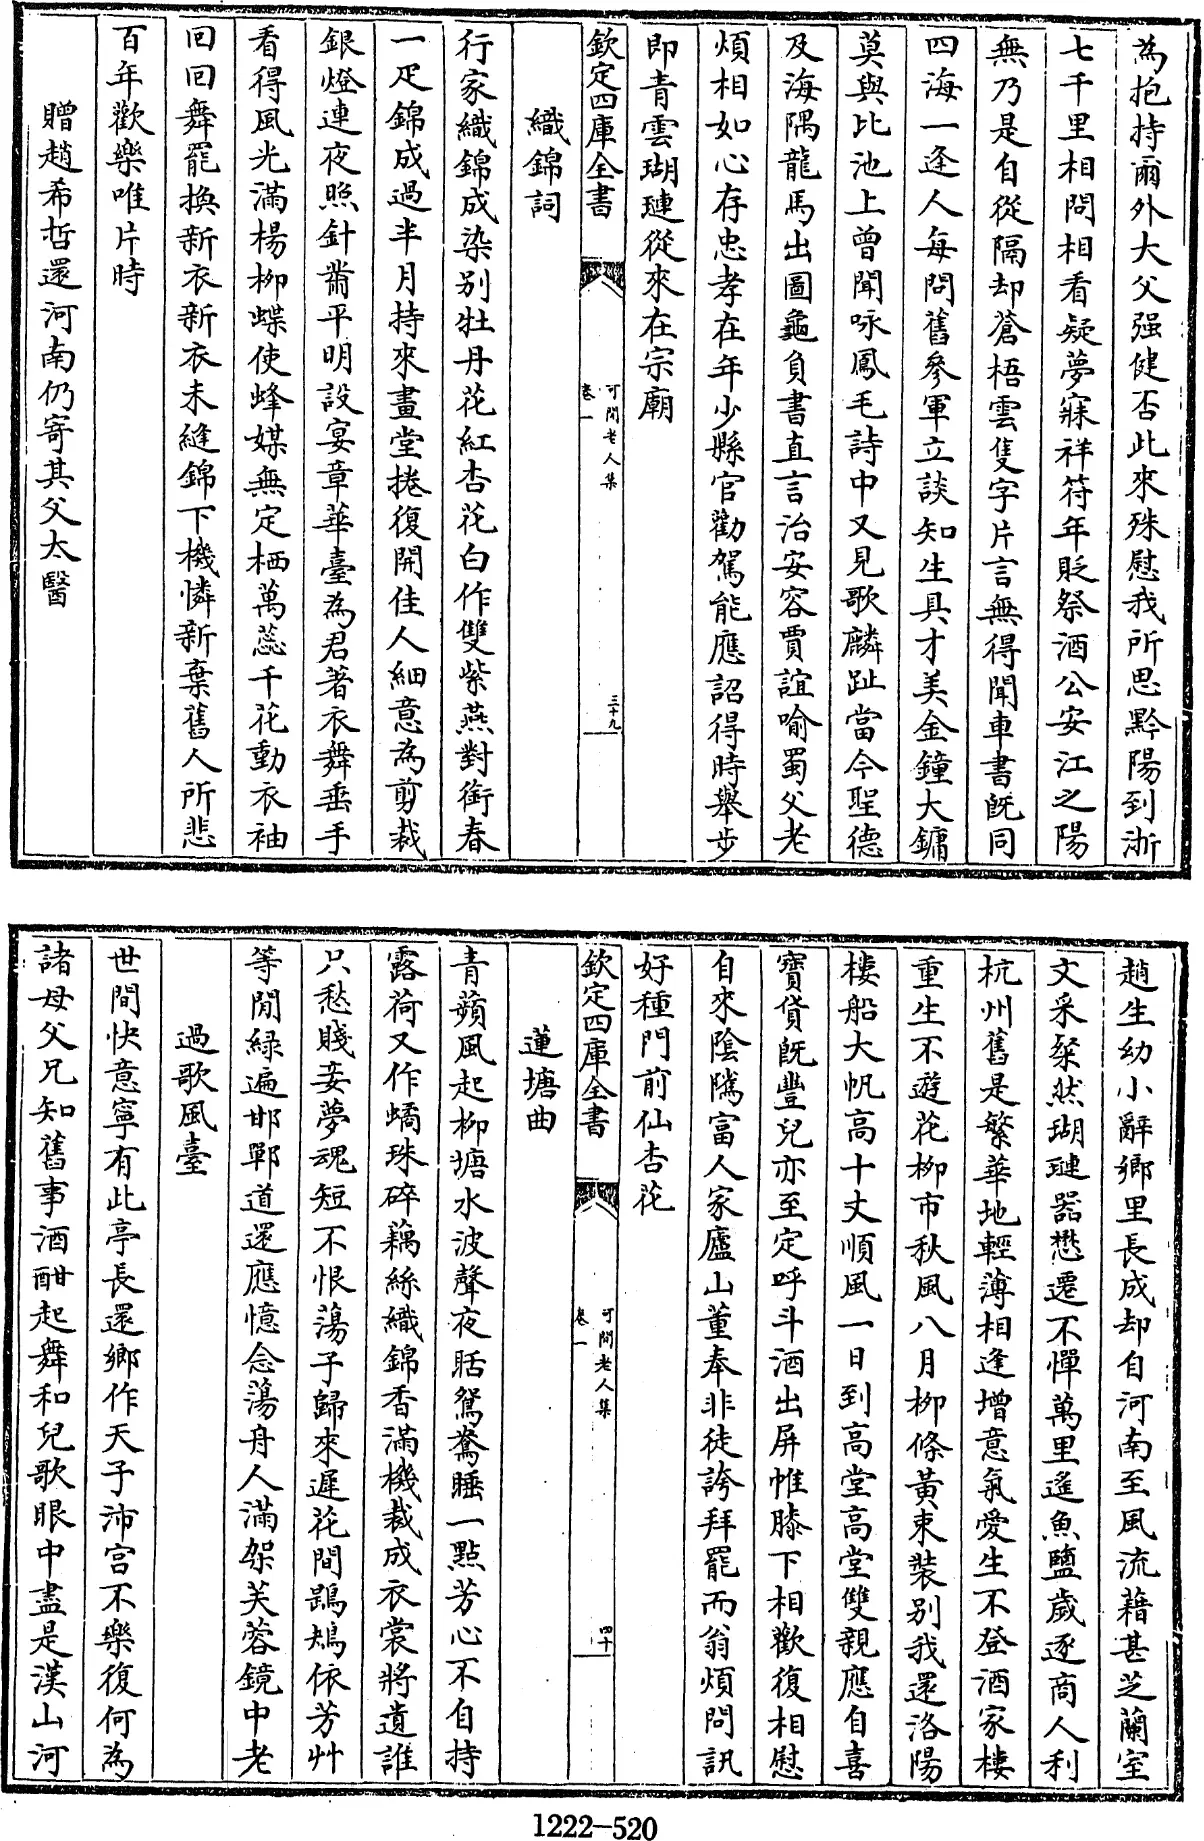 為抱持爾外大父强健否此來殊慰我所思黔陽到浙
七千里相問相看疑夢寐祥符年貶祭酒公安江之陽
無乃是自從隔却蒼梧雲隻字片言無得聞車書既同
四海一逢人每問舊參軍立談知生具才美金鐘大鏞
莫與比池上曾聞咏鳳毛詩中又見歌麟趾當今聖德
及海隅龍馬出圖龜負書直言治安容賈誼喻蜀父老
煩相如心存忠孝在年少縣官勸駕能應詔得時舉步
即青雲瑚璉從來在宗廟
欽定四庫全書
可閒老人集
卷一
三十九
織錦詞
行家織錦成染别牡丹花紅杏花白作雙紫燕對銜春
一疋錦成過半月持來畫堂捲復開佳人細意為剪裁
銀燈連夜照針黹平明設宴章華臺為君著衣舞垂手
看得風光滿楊柳蝶使蜂媒無定栖萬蕊千花動衣袖
回回舞罷換新衣新衣未縫錦下機憐新棄舊人所悲
百年歡樂唯片時
贈趙希哲還河南仍寄其父太醫
趙生幼小辭鄉里長成却自河南至風流藉甚芝蘭室
文采粲然瑚璉器懋遷不憚萬里遙魚鹽歲逐商人利
杭州舊是繁華地輕薄相逢增意氣愛生不登酒家樓
重生不遊花柳市秋風八月柳條黃束裝别我還洛陽
樓船大帆高十丈順風一日到高堂高堂雙親應自喜
寶貨既豐兒亦至定呼斗酒出屏帷膝下相歡復相慰
自來陰隲富人家廬山董奉非徒誇拜罷而翁煩問訊
好種門前仙杏花
欽定四庫全書
可閒老人集
卷一
四十
蓮塘曲
青蘋風起柳塘水波聲夜聒鴛鴦睡一點芳心不自持
露荷又作蟠珠碎藕絲織錦香滿機裁成衣裳將遺誰
只愁賤妾夢魂短不恨蕩子歸來遲花間鵾鴂依芳艸
等閒緑遍邯鄲道還應憶念蕩舟人滿架芙蓉鏡中老
過歌風臺
世間快意寧有此亭長還鄉作天子沛宫不樂復何為
諸母父兄知舊事酒酣起舞和兒歌眼中盡是漢山河
1222—520